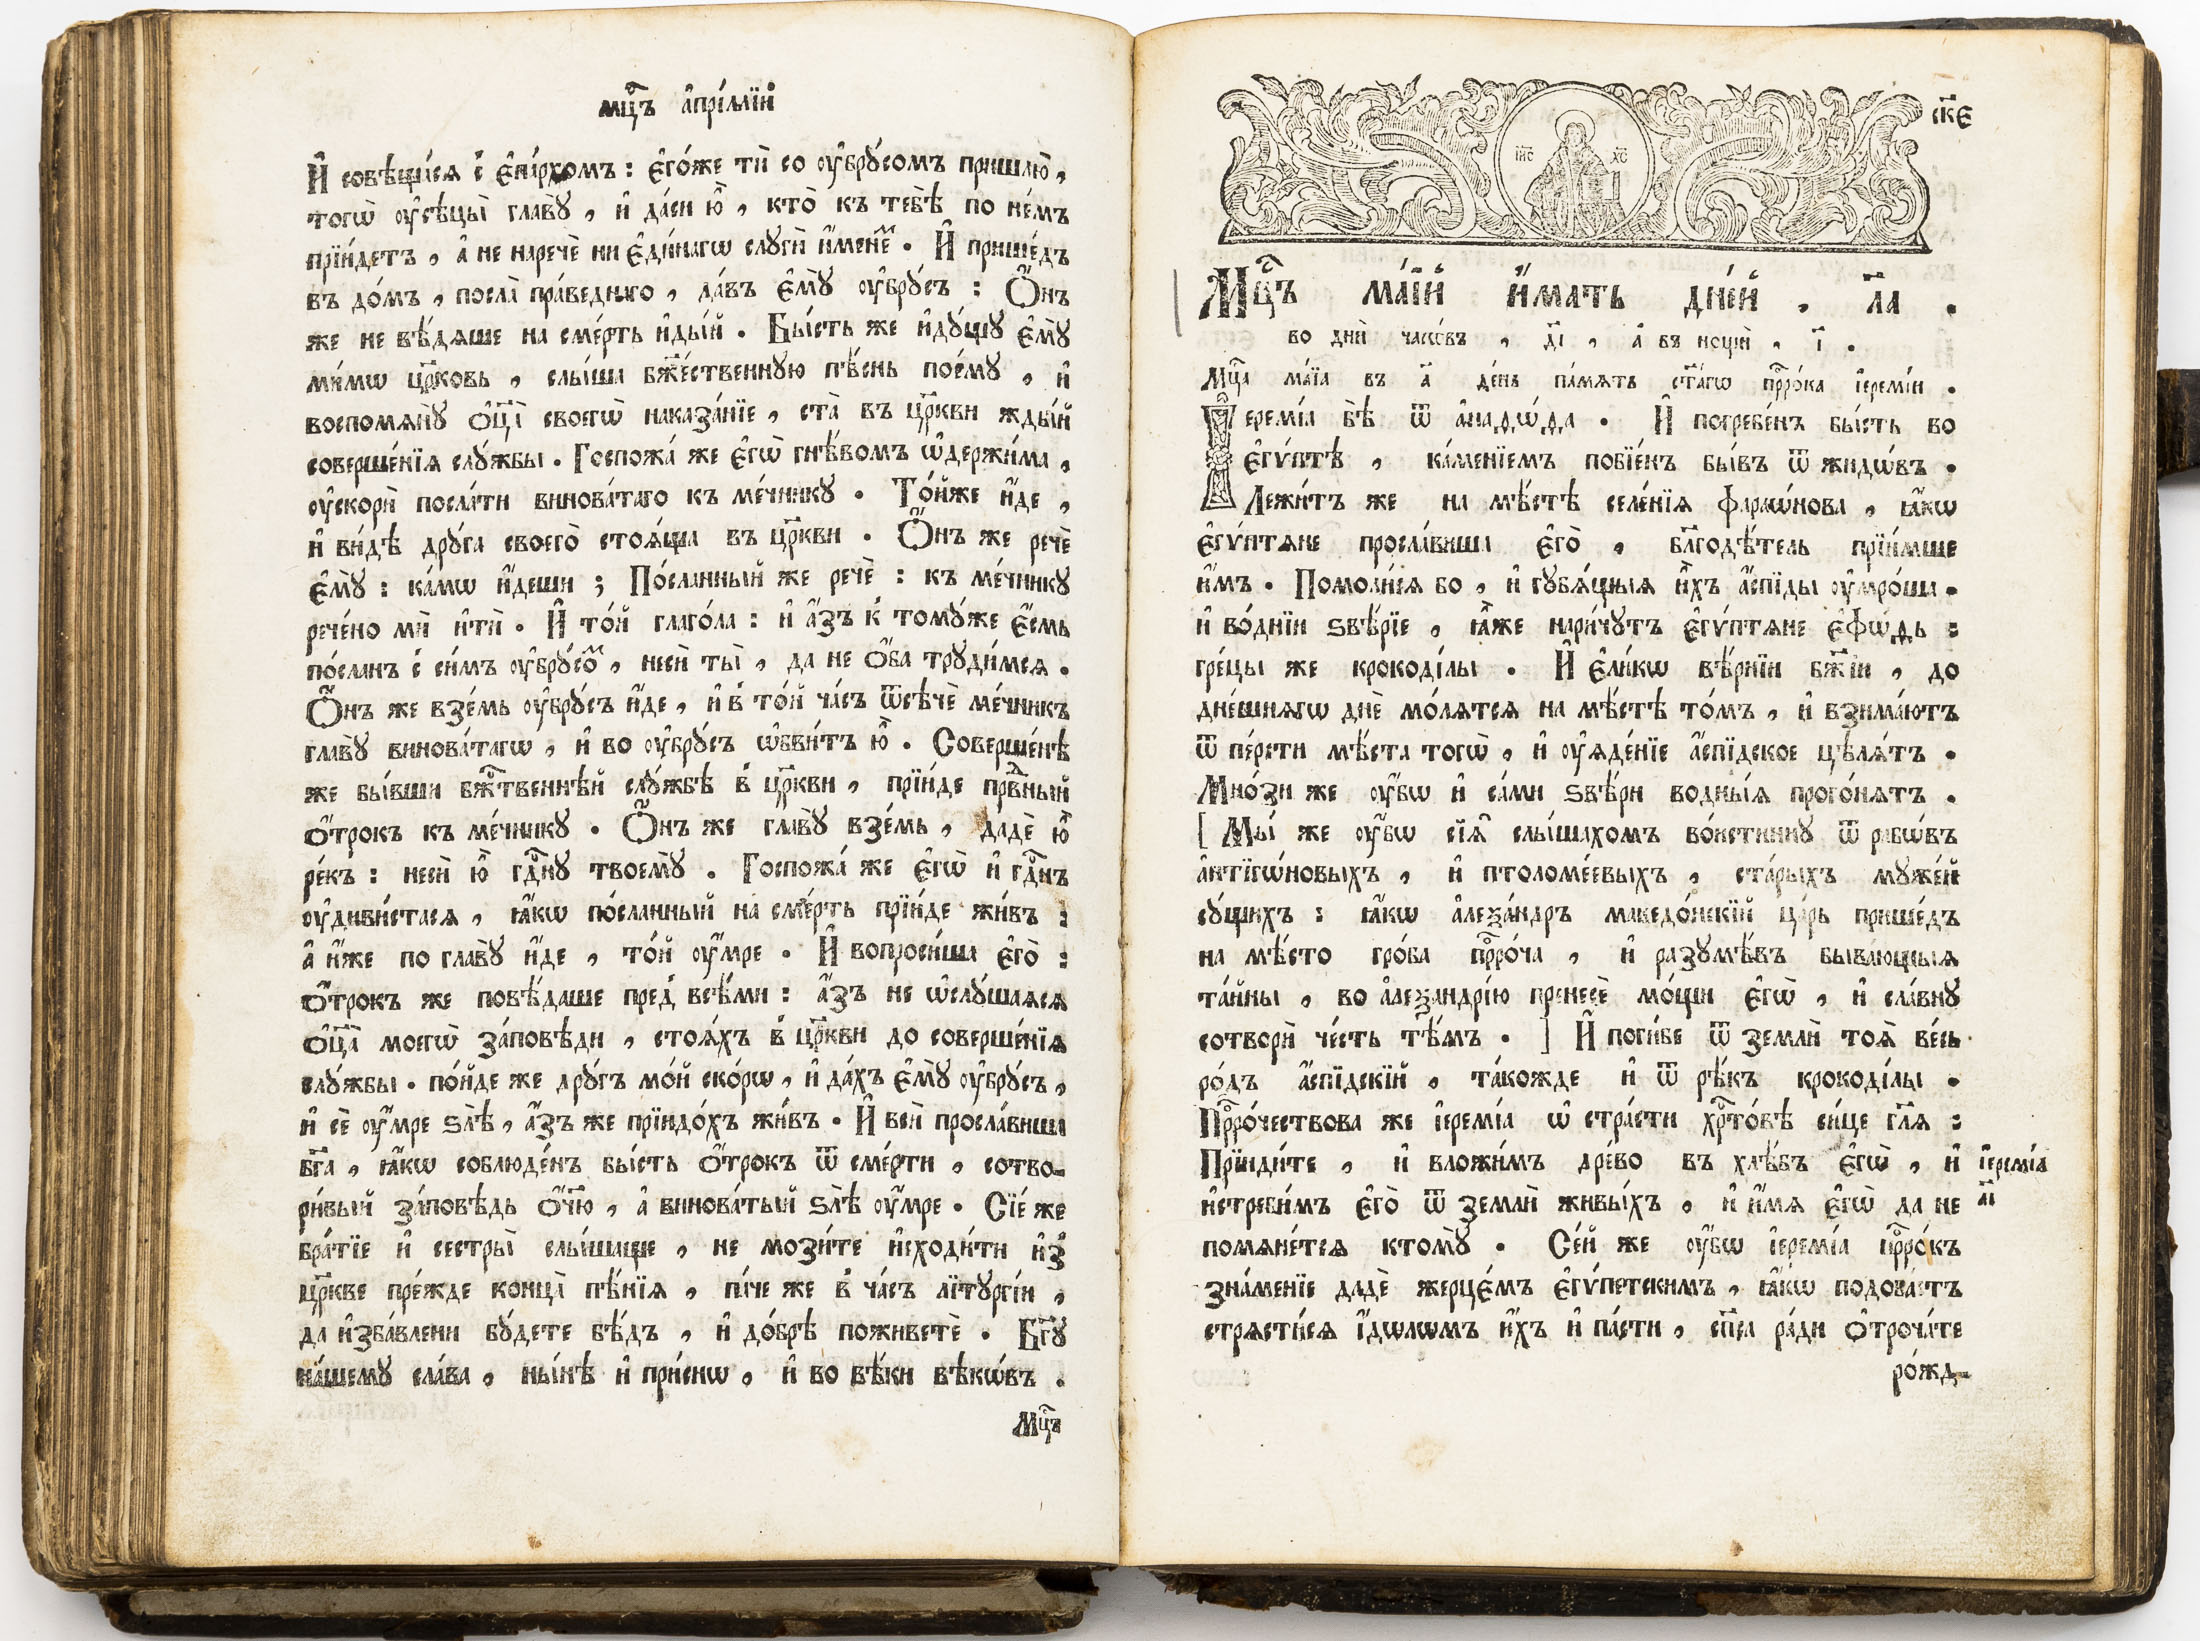 мц҃ъ а҆прі́ллїй
И҆ совѣща́сѧ с̾ є҆па́рхомъ : є҆го́же тѝ со ᲂу҆брꙋ́сомъ пришлю̀ ,
тогѡ̀ ᲂу҆сѣцы̀ главꙋ̀ , и҆ да́си ю҆̀ , кто̀ къ тебѣ̀ по не́мъ
прїи́детъ , а҆ не наречѐ ни є҆ди́нагѡ слꙋгѝ и҆́менѐ . И҆ прише́дъ
въ до́мъ , посла̀ пра́веднаго , да́въ є҆мꙋ̀ ᲂу҆брꙋ́съ : Ѻ҆́нъ
же не вѣ́дѧше на сме́рть и҆ды́й . Бы́сть же и҆дꙋ́щꙋ є҆мꙋ̀
ми́мѡ цр҃ковь , слы́ша бж҃е́ственнꙋю пѣ́снь пое́мꙋ , и҆
воспомѧнꙋ̀ ѻ҆ц҃а̀ своегѡ̀ наказа́нїе , ста̀ въ цр҃кви жды́й
соверше́нїѧ слꙋ́жбы . Госпожа́ же є҆гѡ̀ гнѣ́вомъ ѡ҆держи́ма ,
ᲂу҆скорѝ посла́ти винова́таго къ ме́чникꙋ . То́йже и҆́де ,
и҆ ви́дѣ дрꙋ́га своего̀ стоѧ́ща въ цр҃кви . Ѻ҆́нъ же речѐ
є҆мꙋ̀ : ка́мѡ и҆́деши ; По́сланный же речѐ : къ ме́чникꙋ
рече́но мѝ и҆тѝ . И҆ то́й глаго́ла : и҆ а҆́зъ к̾ томꙋ́же є҆́смь
по́сланъ с̾ си́мъ ᲂу҆брꙋ́сѡⷨ , несѝ ты̀ , да не ѻ҆́ба трꙋди́мсѧ .
Ѻ҆́нъ же взе́мь ᲂу҆брꙋ́съ и҆́де , и҆ в̾ то́й ча́съ ѿсѣчѐ ме́чникъ
главꙋ̀ винова́тагѡ , и҆ во ᲂу҆брꙋ́съ ѡ҆бви́тъ ю҆̀ . Соверше́нѣ
же бы́вши бж҃твеннѣ́й слꙋ́жбѣ в̾ цр҃кви , прїи́де прⷣвный
ѻ҆́трокъ къ ме́чникꙋ . Ѻ҆́нъ же главꙋ̀ взе́мь , дадѐ ю҆̀
ре́къ : несѝ ю҆̀ гдⷭ҇нꙋ твоемꙋ̀ . Госпожа́ же є҆гѡ̀ и҆ гдⷭ҇нъ
ᲂу҆диви́стасѧ , ꙗ҆́кѡ по́сланный на сме́рть прїи́де жи́въ :
а҆ и҆́же по главꙋ̀ и҆́де , то́й ᲂу҆́мре . И҆ вопроси́ша є҆го̀ :
ѻ҆́трокъ же повѣ́даше пред̾ всѣ́ми : а҆́зъ не ѡ҆слꙋ́шаѧсѧ
ѻ҆ц҃а̀ моегѡ̀ за́повѣди , стоѧ́хъ в̾ цр҃кви до соверше́нїѧ
слꙋ́жбы . по́йде же дрꙋ́гъ мо́й ско́рѡ , и҆ да́хъ є҆мꙋ̀ ᲂу҆брꙋ́съ ,
и҆ сѐ ᲂу҆́мре ѕлѣ̀ , а҆́зъ же прїидо́хъ жи́въ . И҆ всѝ просла́виша
бг҃а , ꙗ҆́кѡ соблюде́нъ бы́сть ѻ҆́трокъ ѿ сме́рти , сотво-
ри́вый за́повѣдь ѻ҆́ч҃ю , а҆ винова́тый ѕлѣ̀ ᲂу҆́мре . Сїе́ же
бра́тїе и҆ сестры̀ слы́шаще , не мози́те и҆сходи́ти и҆з̾
цр҃кве пре́жде конца̀ пѣ́нїѧ , па́че же в̾ ча́съ лїтꙋргі́и ,
да и҆зба́влени бꙋ́дете бѣ́дъ , и҆ до́брѣ поживетѐ . Бг҃ꙋ
на́шемꙋ сла́ва , ны́нѣ и҆ при́снѡ , и҆ во вѣ́ки вѣкѡ́въ .
Мц҃ъ
ск҃є
І҆И҃С Х҃С
Мц҃ъ ма́їй и҆́мать дні́й , л҃а .
во днѝ часо́въ , д҃і , а҆ въ нощѝ , і҃ .
Мц҃а ма́їа въ а҃ де́нь па́мѧть ст҃а́гѡ прⷪ҇ро́ка і҆еремі́и .
І҆еремі́а бѣ̀ ѿ а҆надѡ́да . И҆ погребе́нъ бы́сть во
є҆гѵ́птѣ , ка́менїемъ побїе́нъ бы́въ ѿ жидѡ́въ .
Лежи́тъ же на мѣ́стѣ селе́нїѧ фараѡ́нова , ꙗ҆́кѡ
є҆гѵ́птѧне просла́виша є҆го̀ , бл҃годѣ́тель прїи́мше
и҆́мъ . Помоли́сѧ бо , и҆ гꙋбѧ́щыѧ и҆́хъ а҆́спїды ᲂу҆мро́ша .
и҆ во́днїи ѕвѣ́рїе , ꙗ҆̀же нари́чꙋтъ є҆гѵ́птѧне є҆фѡ́дь :
гре́цы же крокоді́лы . И҆ є҆ли́кѡ вѣ́рнїи бж҃їи , до
дне́шнѧгѡ днѐ мо́лѧтсѧ на мѣ́стѣ то́мъ , и҆ взима́ютъ
ѿ пе́рсти мѣ́ста тогѡ̀ , и҆ ᲂу҆ѧде́нїе а҆́спїдское цѣлѧ́тъ .
Мно́зи же ᲂу҆́бѡ и҆ са́ми ѕвѣ́ри водны́ѧ прого́нѧтъ .
[ Мы́ же ᲂу҆́бѡ сїѧ̑ слы́шахомъ вои́стиннꙋ ѿ рабѡ́въ
а҆нтїгѡ́новыхъ , и҆ птоломе́евыхъ , ста́рыхъ мꙋже́й
сꙋ́щихъ : ꙗ҆́кѡ а҆леѯа́ндръ македо́нскїй ца́рь прише́дъ
на мѣ́сто гро́ба прⷪ҇ро́ча , и҆ разꙋмѣ́въ быва́ющыѧ
та́йны , во а҆леѯандрі́ю пренесѐ мо́щи є҆гѡ̀ , и҆ сла́внꙋ
сотворѝ че́сть тѣ́мъ . ] И҆ поги́бе ѿ землѝ тоѧ̀ ве́сь
ро́дъ а҆́спїдскїй , та́кожде и҆ ѿ рѣ́къ крокоді́лы .
Прⷪ҇ро́чествова же і҆еремі́а ѡ҆ стра́сти хрⷭ҇то́вѣ си́це гл҃ѧ :
Прїиди́те , и҆ вложи́мъ дре́во въ хлѣ́бъ є҆гѡ̀ , и҆
і҆еремі́а
а҃і
и҆стреби́мъ є҆го̀ ѿ землѝ живы́хъ , и҆ и҆́мѧ є҆гѡ̀ да не
помѧне́тсѧ ктомꙋ̀ . Се́й же ᲂу҆́бѡ і҆еремі́а прⷪ҇ро́къ
зна́менїе дадѐ жерце́мъ є҆гѵ́петскимъ , ꙗ҆́кѡ подоба́етъ
стрѧсти́сѧ і҆́дѡлѡмъ и҆́хъ и҆ па́сти , сп҃са ра́ди ѻ҆троча́те
ро́жд-